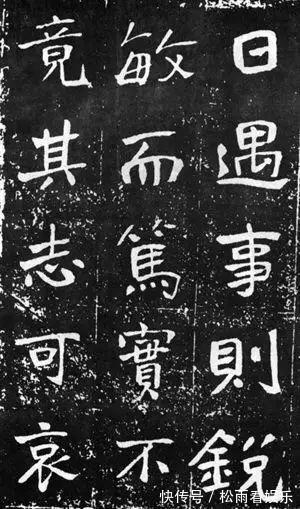 日遇事則銳
敏而篤實不
竟其志可哀
快传号 / 松雨看娱乐